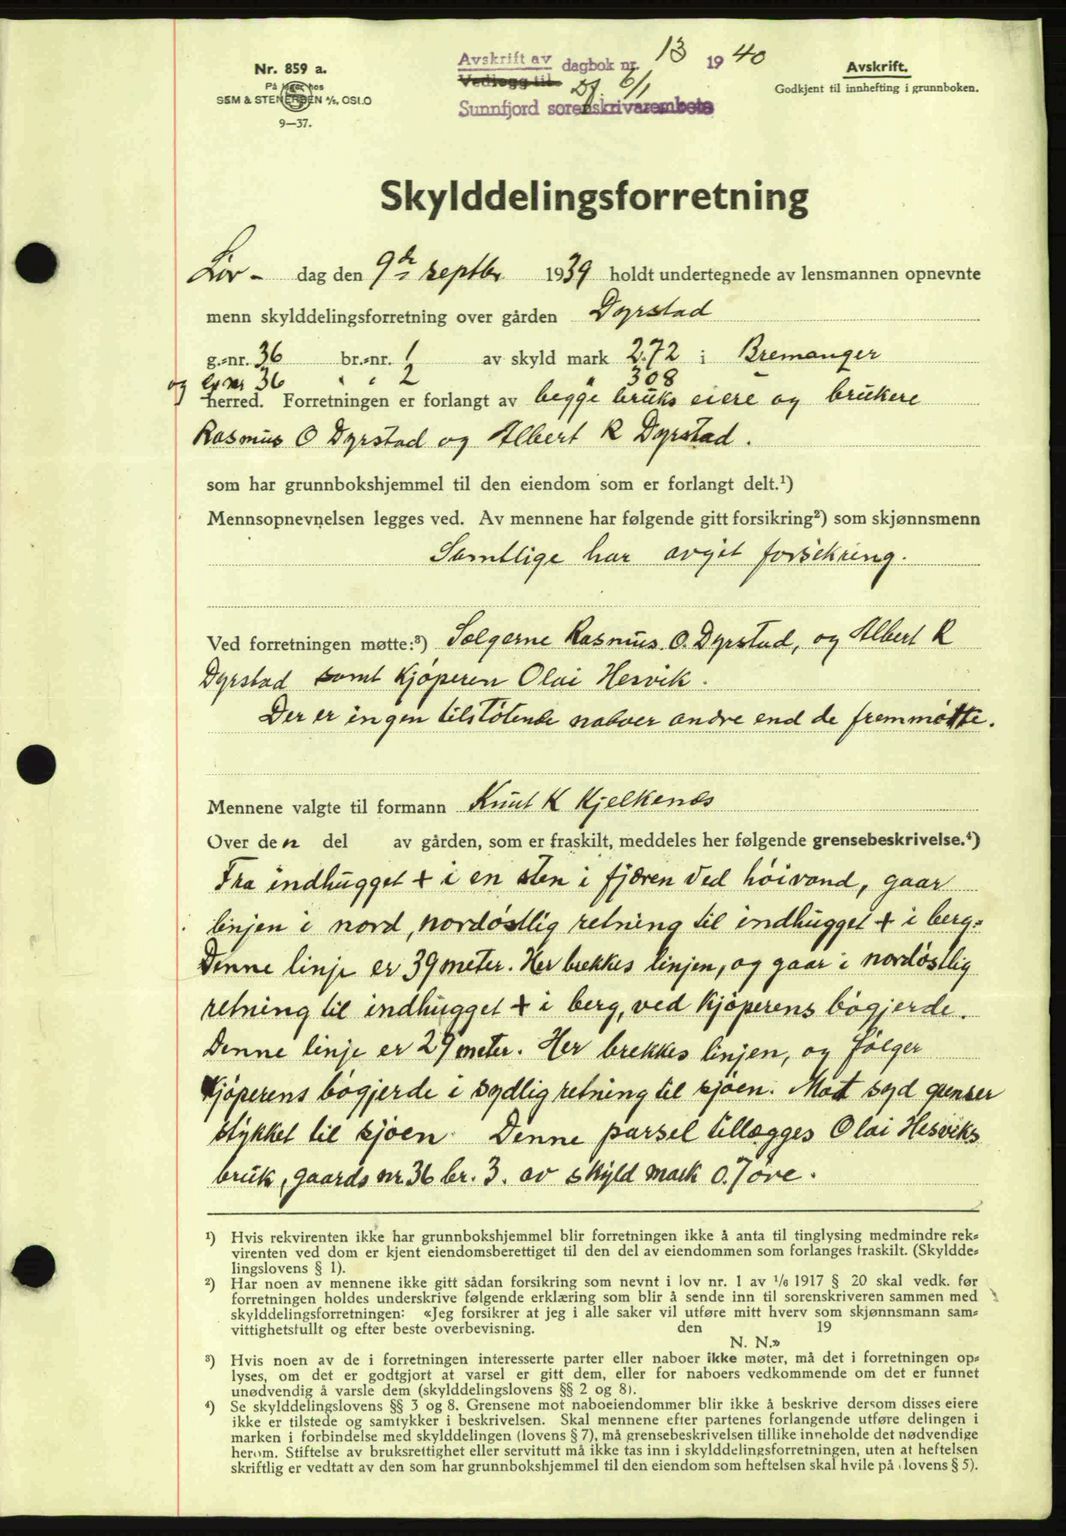 Nr. 859 a.
På lager hos
SEM & STENERSEN A/S, OSLO
9—37.
Avskrift av dagbok nr. 13 1940
Vedlegg til Df. 6/1
Sunnfjord sorenskrivarembete
Avskrift.
Godkjent til innhefting i grunnboken.
Skylddelingsforretning
Lør- dag den 9de septbr 1939 holdt undertegnede av lensmannen opnevnte
menn skylddelingsforretning over gården Dyrstad
g.-nr. 36 br.-nr. 1 av skyld mark 2.72 i Bremanger
og gnr 36 " " 2 " 308
herred. Forretningen er forlangt av begge bruks eiere og brukere
Rasmus O Dyrstad og Albert R Dyrstad.
som har grunnbokshjemmel til den eiendom som er forlangt delt.¹)
Mennsopnevnelsen legges ved. Av mennene har følgende gitt forsikring²) som skjønnsmenn
Samtlige har avgit forsikring.
Ved forretningen møtte:³) Sælgerne Rasmus O. Dyrstad, og Albert R
Dyrstad samt Kjøperen Olai Hesvik.
Der er ingen tilstøtende naboer andre end de fremmøtte.
Mennene valgte til formann Knut K Kjelkenæs
Over den del av gården, som er fraskilt, meddeles her følgende grensebeskrivelse.⁴)
Fra indhugget + i en sten i fjæren ved høivand, gaar
linjen i nord, nordøstlig retning til indhugget + i berg.
Denne linje er 39 meter. Her brekkes linjen, og gaar i nordøstlig
retning til indhugget + i berg, ved Kjøperens bøgjerde.
Denne linje er 29 meter. Her brekkes linjen, og følger
Kjøperens bøgjerde i sydlig retning til sjøen. Mot syd grenser
stykket til sjøen. Denne parsel tillægges Olai Hesviks
bruk, gaards nr. 36 br. 3. av skyld mark 0.7 øre.
¹) Hvis rekvirenten ikke har grunnbokshjemmel blir forretningen ikke å anta til tinglysing medmindre rek-
virenten ved dom er kjent eiendomsberettiget til den del av eiendommen som forlanges fraskilt. (Skyldde-
lingslovens § 1).
²) Har noen av mennene ikke gitt sådan forsikring som nevnt i lov nr. 1 av 1/6 1917 § 20 skal vedk. før
forretningen holdes underskrive følgende erklæring som blir å sende inn til sorenskriveren sammen med
skylddelingsforretningen: «Jeg forsikrer at jeg i alle saker vil utføre mitt hverv som skjønnsmann sam-
vittighetsfullt og efter beste overbevisning. den 19
N. N.»
³) Hvis noen av de i forretningen interesserte parter eller naboer ikke møter, må det i forretningen op-
lyses, om det er godtgjort at varsel er gitt dem, eller for naboers vedkommende om det er funnet
unødvendig å varsle dem (skylddelingslovens §§ 2 og 8).
⁴) Se skylddelingslovens §§ 3 og 8. Grensene mot naboeiendommer blir ikke å beskrive dersom disses eiere
ikke er tilstede og samtykker i beskrivelsen. Skal mennene efter partenes forlangende utføre delingen i
marken i forbindelse med skylddelingen (lovens § 7), må grensebeskrivelsen tillike inneholde det nødvendige
herom. Stiftelse av bruksrettighet eller servitutt må ikke tas inn i skylddelingsforretningen, uten at heftelsen
skriftlig er vedtatt av den som har grunnbokshjemmel til den eiendom som heftelsen skal hvile på (lovens § 5).